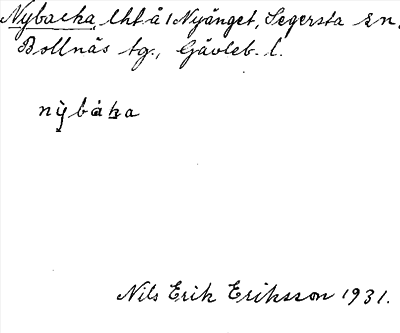 Nybacka, lht å 1 Nyänget, Segersta sn,
Bollnäs tg., Gävleb. l.
ny̆̀båka
Nils Erik Eriksson 1931.